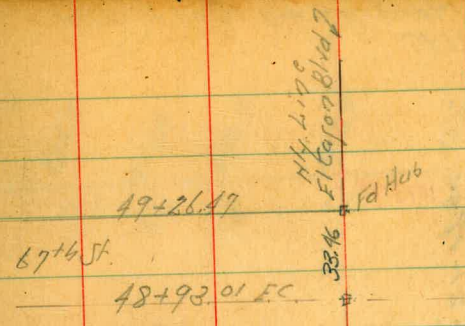 N'ly Line
El Cajon Blvd?
49+26.47
Fd Hub
67th St.
33.46
48+93.01 EC